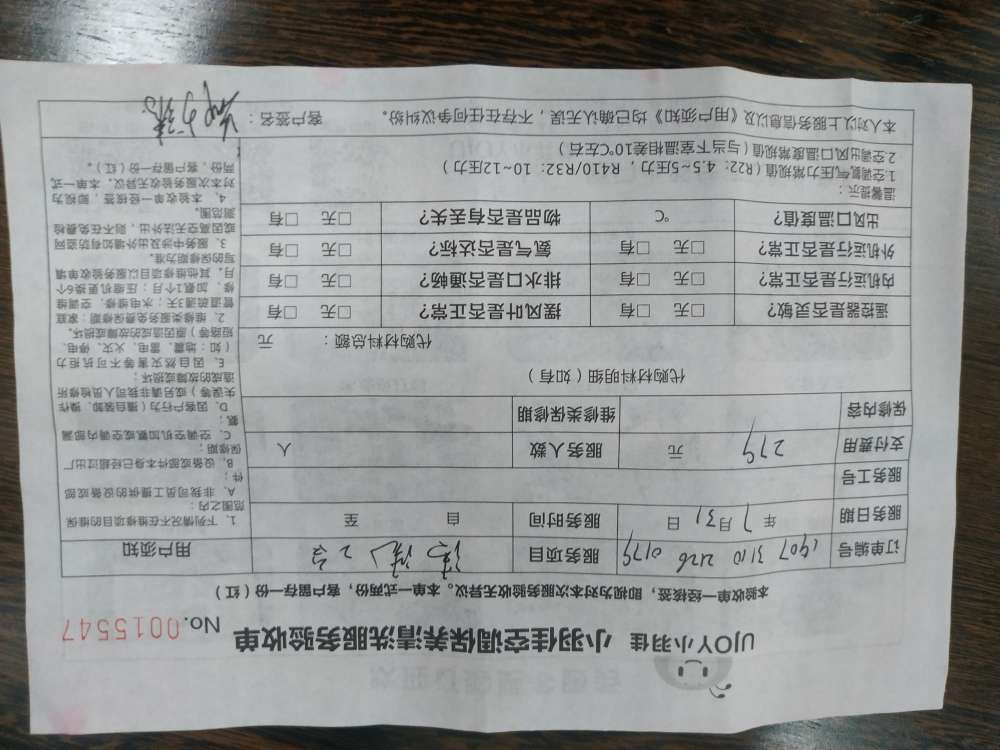 UJOY小羽佳 小羽佳空调保养清洗服务验收单 No.0015547
本验收单一经核签，即视为对本次服务验收无异议。本单一式两份，客户留存一份（红）
订单编号 1907 3110 2126 0179 服务项目 清洗2台 用户须知
服务日期 年7月31日 服务时间 自 至
服务工号
支付费用 279 元 服务人数 人
保修内容 维修类保修期
代购材料明细（如有）
代购材料总额： 元
遥控器是否灵敏？ □无 □有 摆风叶是否正常？ □无 □有
内机运行是否正常？ □无 □有 排水口是否通畅？ □无 □有
外机运行是否正常？ □无 □有 氨气是否达标？ □无 □有
出风口温度值？ ℃ 物品是否有丢失？ □无 □有
温馨提示：
1.空调氨气压力常规值（R22：4.5~5压力，R410/R32：10~12压力）
2.空调出风口温度常规值（与当下室温相差10℃左右）
1、下列情况不在维修项目的维保
范围之内：
A、非我司员工提供的设备或部
件；
B、设备或部件本身已经超过厂
保修期；
C、空调空机加氨或空调内部漏
氨；
D、因客户行为（擅自装卸、操作
失误等）或另请非我司人员检修所
造成的故障或损坏；
E、因自然灾害等不可抗拒力
（如：地震、雷电、火灾、停电、
短路等）原因造成的故障或损坏。
2、维修类服务免费保修期：家庭
管道疏通7天；水电维修、空调维
修、加氨1个月；压缩机更换6个
月，其他维修项目以服务验收单填
写的保修期为准。
3、服务中涉及出外墙如有防盗网
或因高空无法外出，则不在免费检
测范围。
4、本验收单一经核签，即视为
对本次服务验收无异议。本单一式
两份，客户留存一份（红）。
本人对以上服务信息以及《用户须知》均已确认无误，不存在任何争议纠纷。 客户签名：